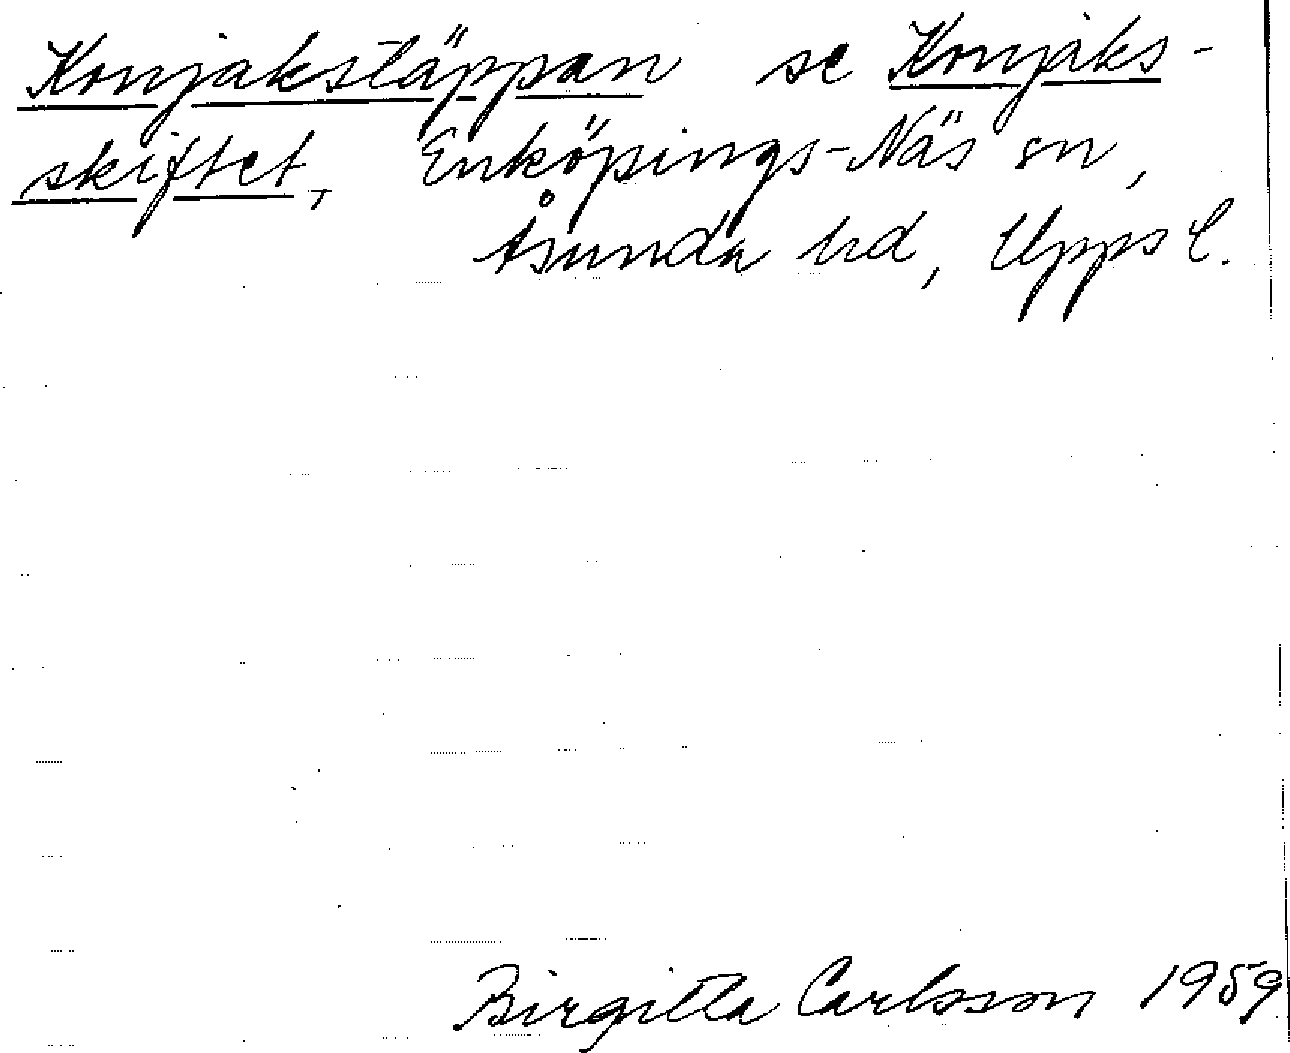 Konjakstäppan se Konjaks-
skiftet, Enköpings-Näs sn,
Åsunda hd, Upps l.
Birgitta Carlsson 1959